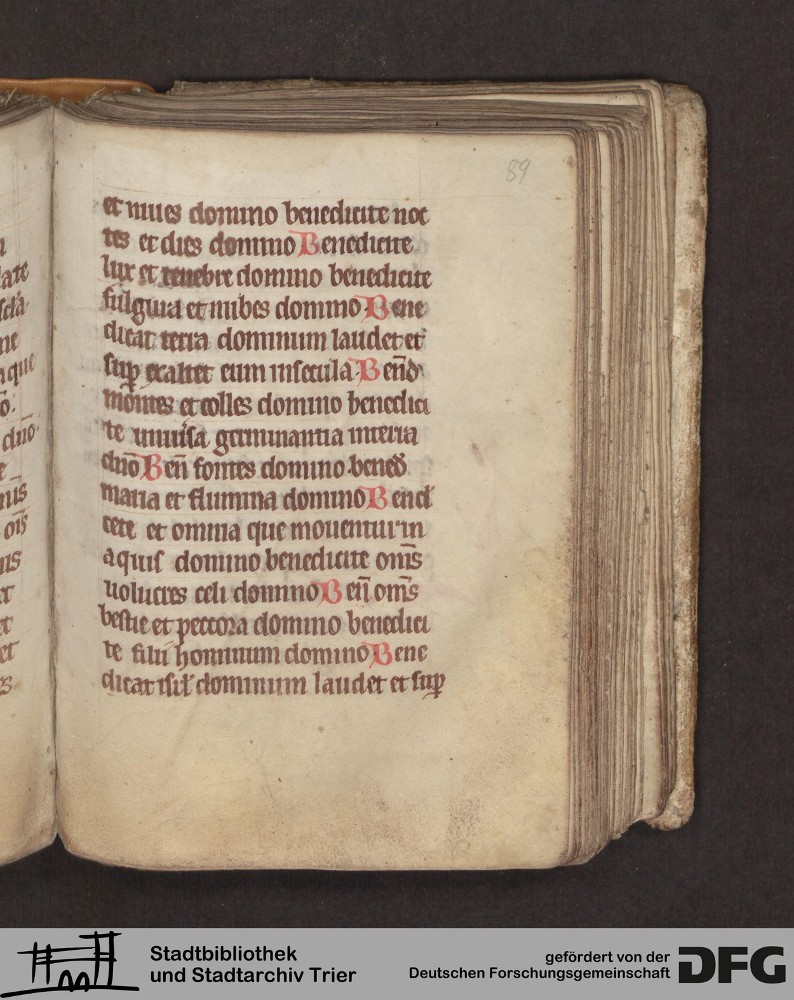 89
et niues domino benedicite noc
tes et dies domino Benedicite
lux et tenebre domino benedicite
fulgura et nubes domino Bene
dicat terra dominum laudet et
suꝑ exaltet eum insecula Bened̄
montes et colles domino benedici
te uniuersa germinantia interra
dn̄o Ben̄ fontes domino bened̄
maria et flumina domino Bend
cete et omnia que mouentur in
aquis domino benedicite om̄s
uolucres celi domino Ben̄ om̄s
bestie et peccora domino benedici
te filii hominum domino Bene
dicat isrł dominum laudet et suꝑ
Stadtbibliothek
und Stadtarchiv Trier
gefördert von der
Deutschen Forschungsgemeinschaft
DFG